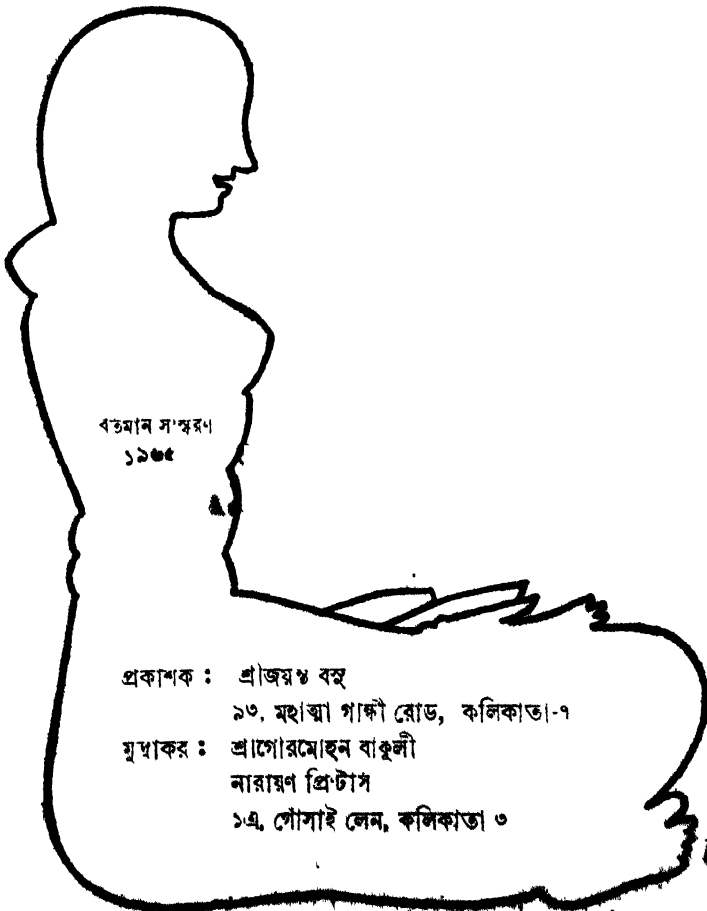 বর্তমান সংস্করণ
১৯৬৫
প্রকাশক : শ্রীজয়ন্ত বসু
৯৩, মহাত্মা গান্ধী রোড, কলিকাতা-৭
মুদ্রাকর : শ্রীগৌরমোহন বাকুলী
নারায়ণ প্রিন্টার্স
১এ, গোঁসাই লেন, কলিকাতা ৩